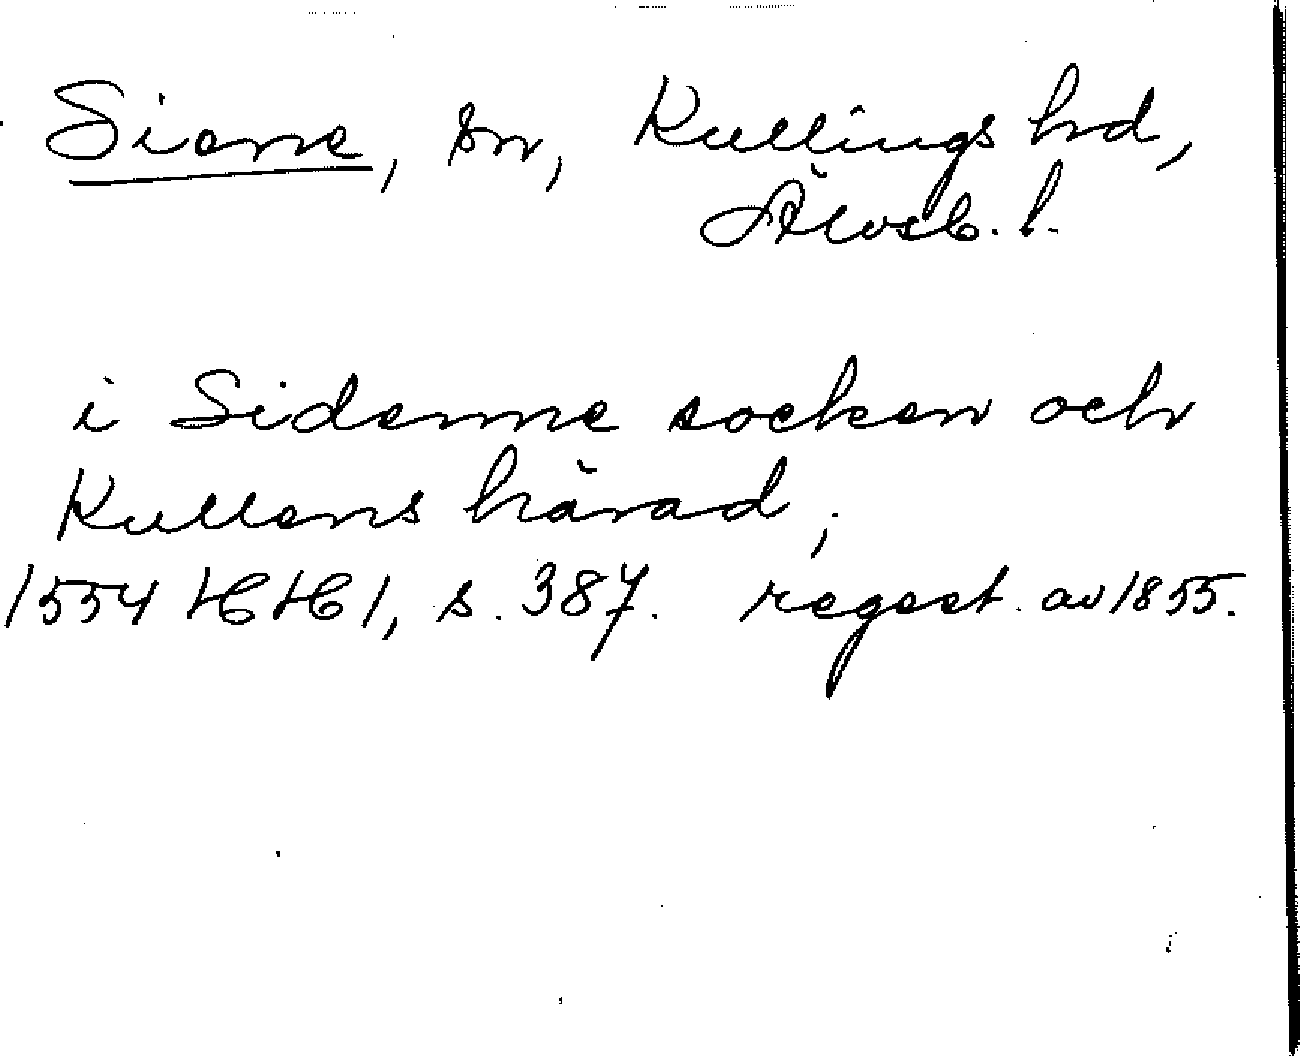 Siene, sn, Kullings hd,
Älvsb. l.
i Sidenne socken och
Kullens härad,
1554 HH1, s. 387. regest. av 1855.